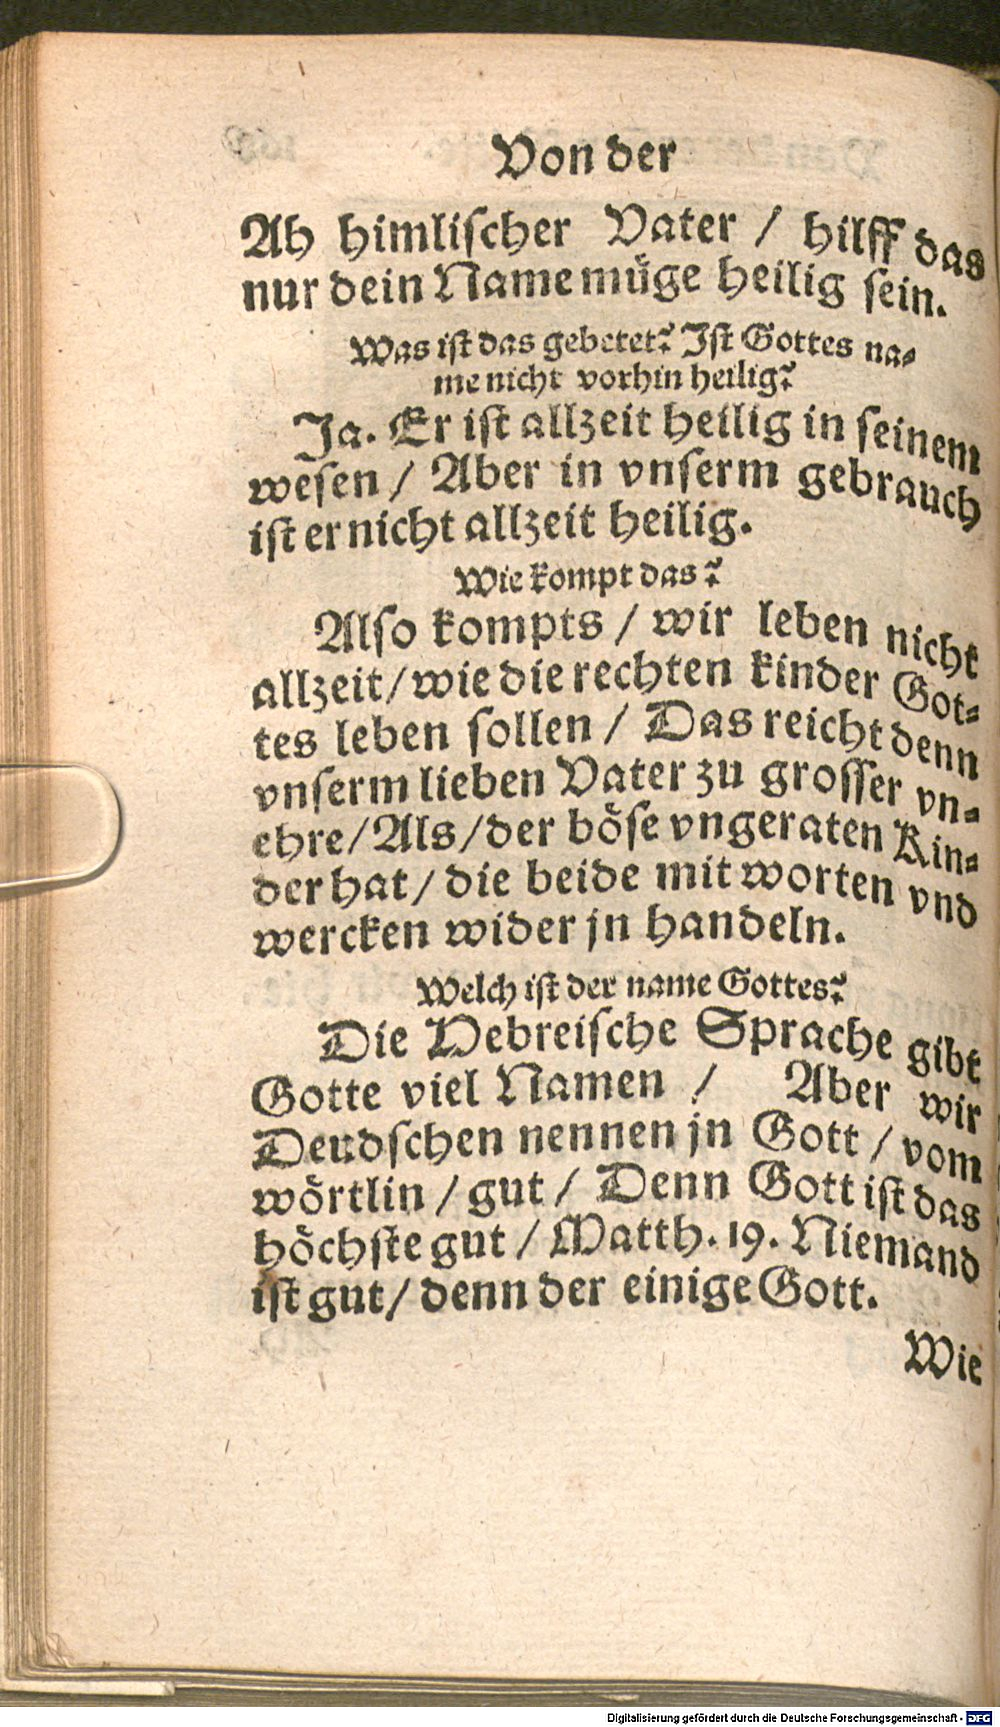 Von der
Ah himlischer Vater / hilff das
nur dein Name müge heilig sein.
Was ist das gebetet? Ist Gottes na-
me nicht vorhin heilig?
Ja. Er ist allzeit heilig in seinem
wesen / Aber in vnserm gebrauch
ist er nicht allzeit heilig.
Wie kompt das?
Also kompts / wir leben nicht
allzeit / wie die rechten kinder Got-
tes leben sollen / Das reicht denn
vnserm lieben Vater zu grosser vn-
ehre / Als / der böse vngeraten Kin-
der hat / die beide mit worten vnd
wercken wider jn handeln.
Welch ist der name Gottes?
Die Hebreische Sprache gibt
Gotte viel Namen / Aber wir
Deudschen nennen jn Gott / vom
wörtlin / gut / Denn Gott ist das
höchste gut / Matth. 19. Niemand
ist gut / denn der einige Gott.
Wie
Digitalisierung gefördert durch die Deutsche Forschungsgemeinschaft - DFG